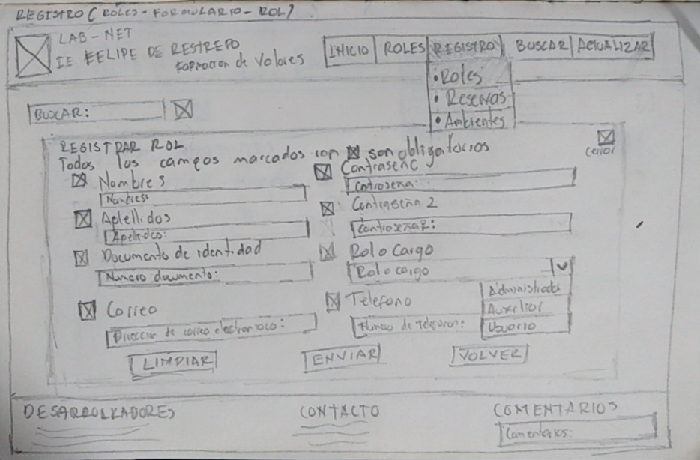 REGISTRO (ROLES - FORMULARIO - ROL)
LAB - NET
IE FELIPE DE RESTREPO
Formacion de Valores
INICIO ROLES REGISTRO BUSCAR ACTUALIZAR
• Roles
• Reservas
• Ambientes
BUSCAR:
REGISTRAR ROL
Todos los campos marcados con son obligatorios
cerrar
Nombres
Nombres:
Apellidos
Apellidos:
Documento de identidad
Numero documento:
Correo
Direccion de correo electronico:
Contraseña
Contraseña:
Contraseña 2
Contraseña 2:
Rol o Cargo
Rol o cargo
Administrador
Auxiliar
Usuario
Telefono
Numero de telefono:
LIMPIAR ENVIAR VOLVER
DESARROLLADORES CONTACTO COMENTARIOS
Comentarios: